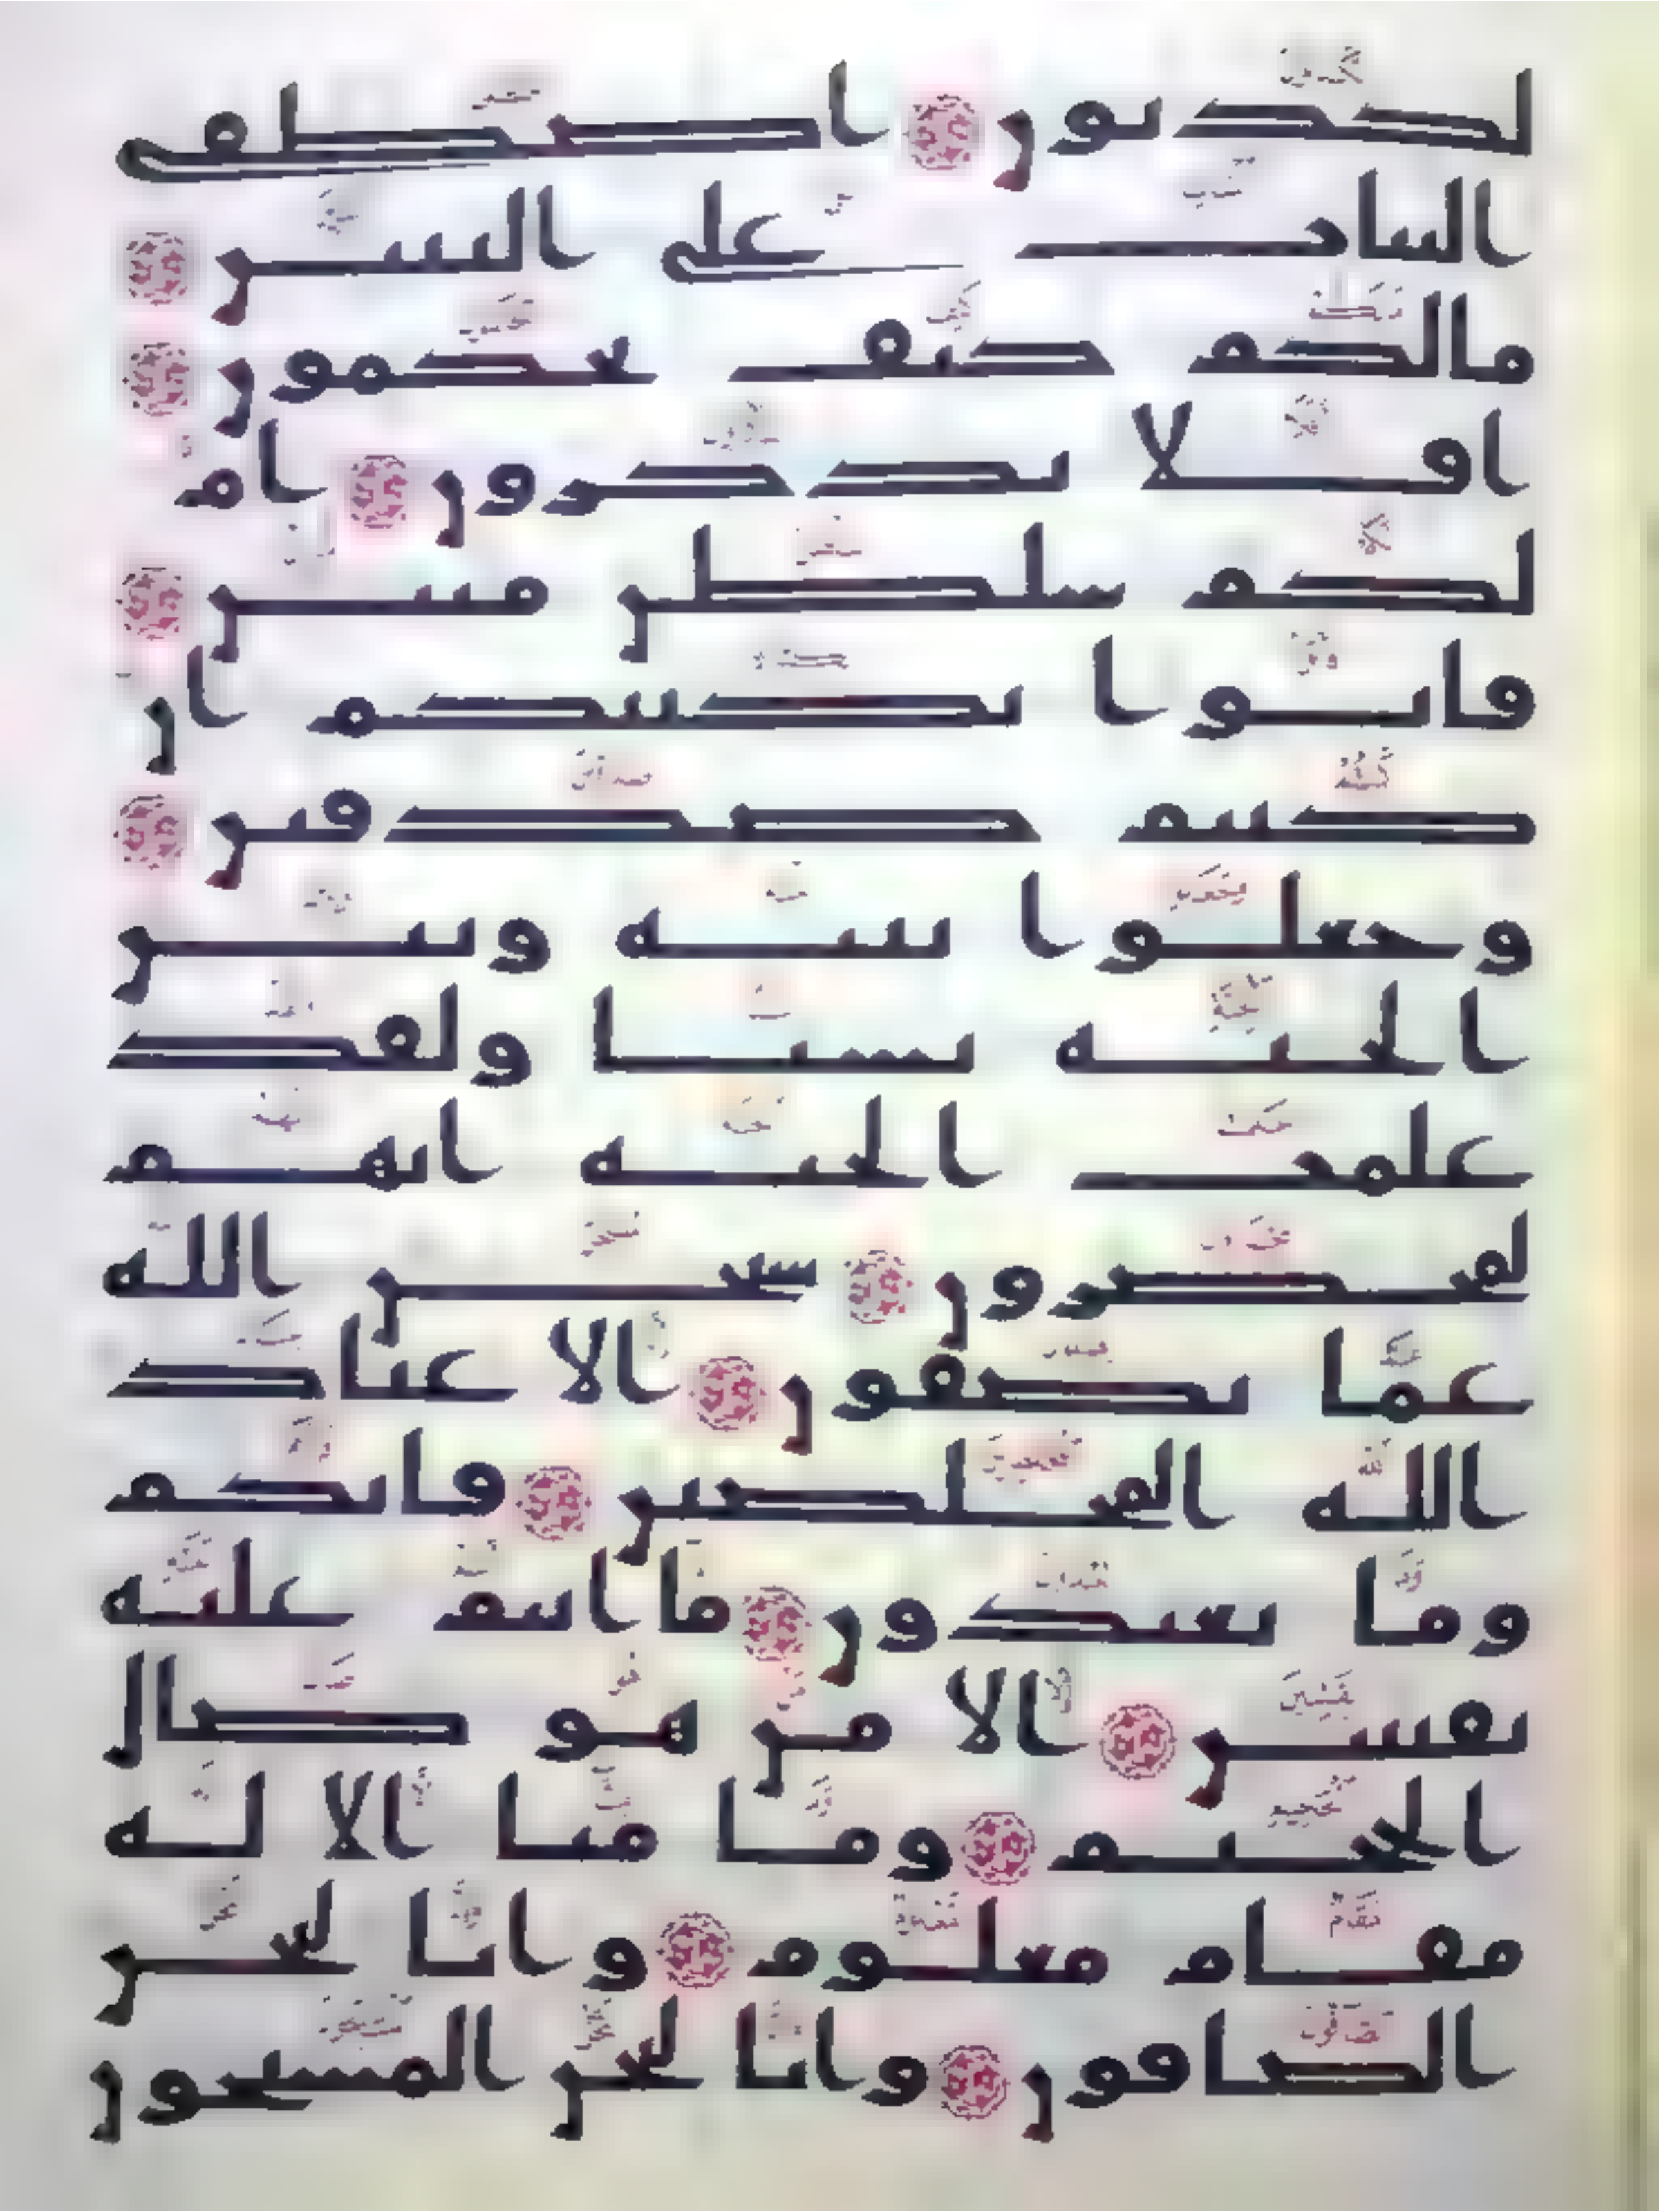 لكذبون اصطفى
البنات على البنين
مالكم كيف تحكمون
افلا تذكرون ام
لكم سلطن مبين
فاتوا بكتبكم ان
كنتم صدقين
وجعلوا بينه وبين
الجنة نسبا ولقد
علمت الجنة انهم
لمحضرون سبحن الله
عما يصفون الا عباد
الله المخلصين فانكم
وما تعبدون ما انتم عليه
بفتنين الا من هو صال
الجحيم وما منا الا له
مقام معلوم وانا لنحن
الصافون وانا لنحن المسبحون